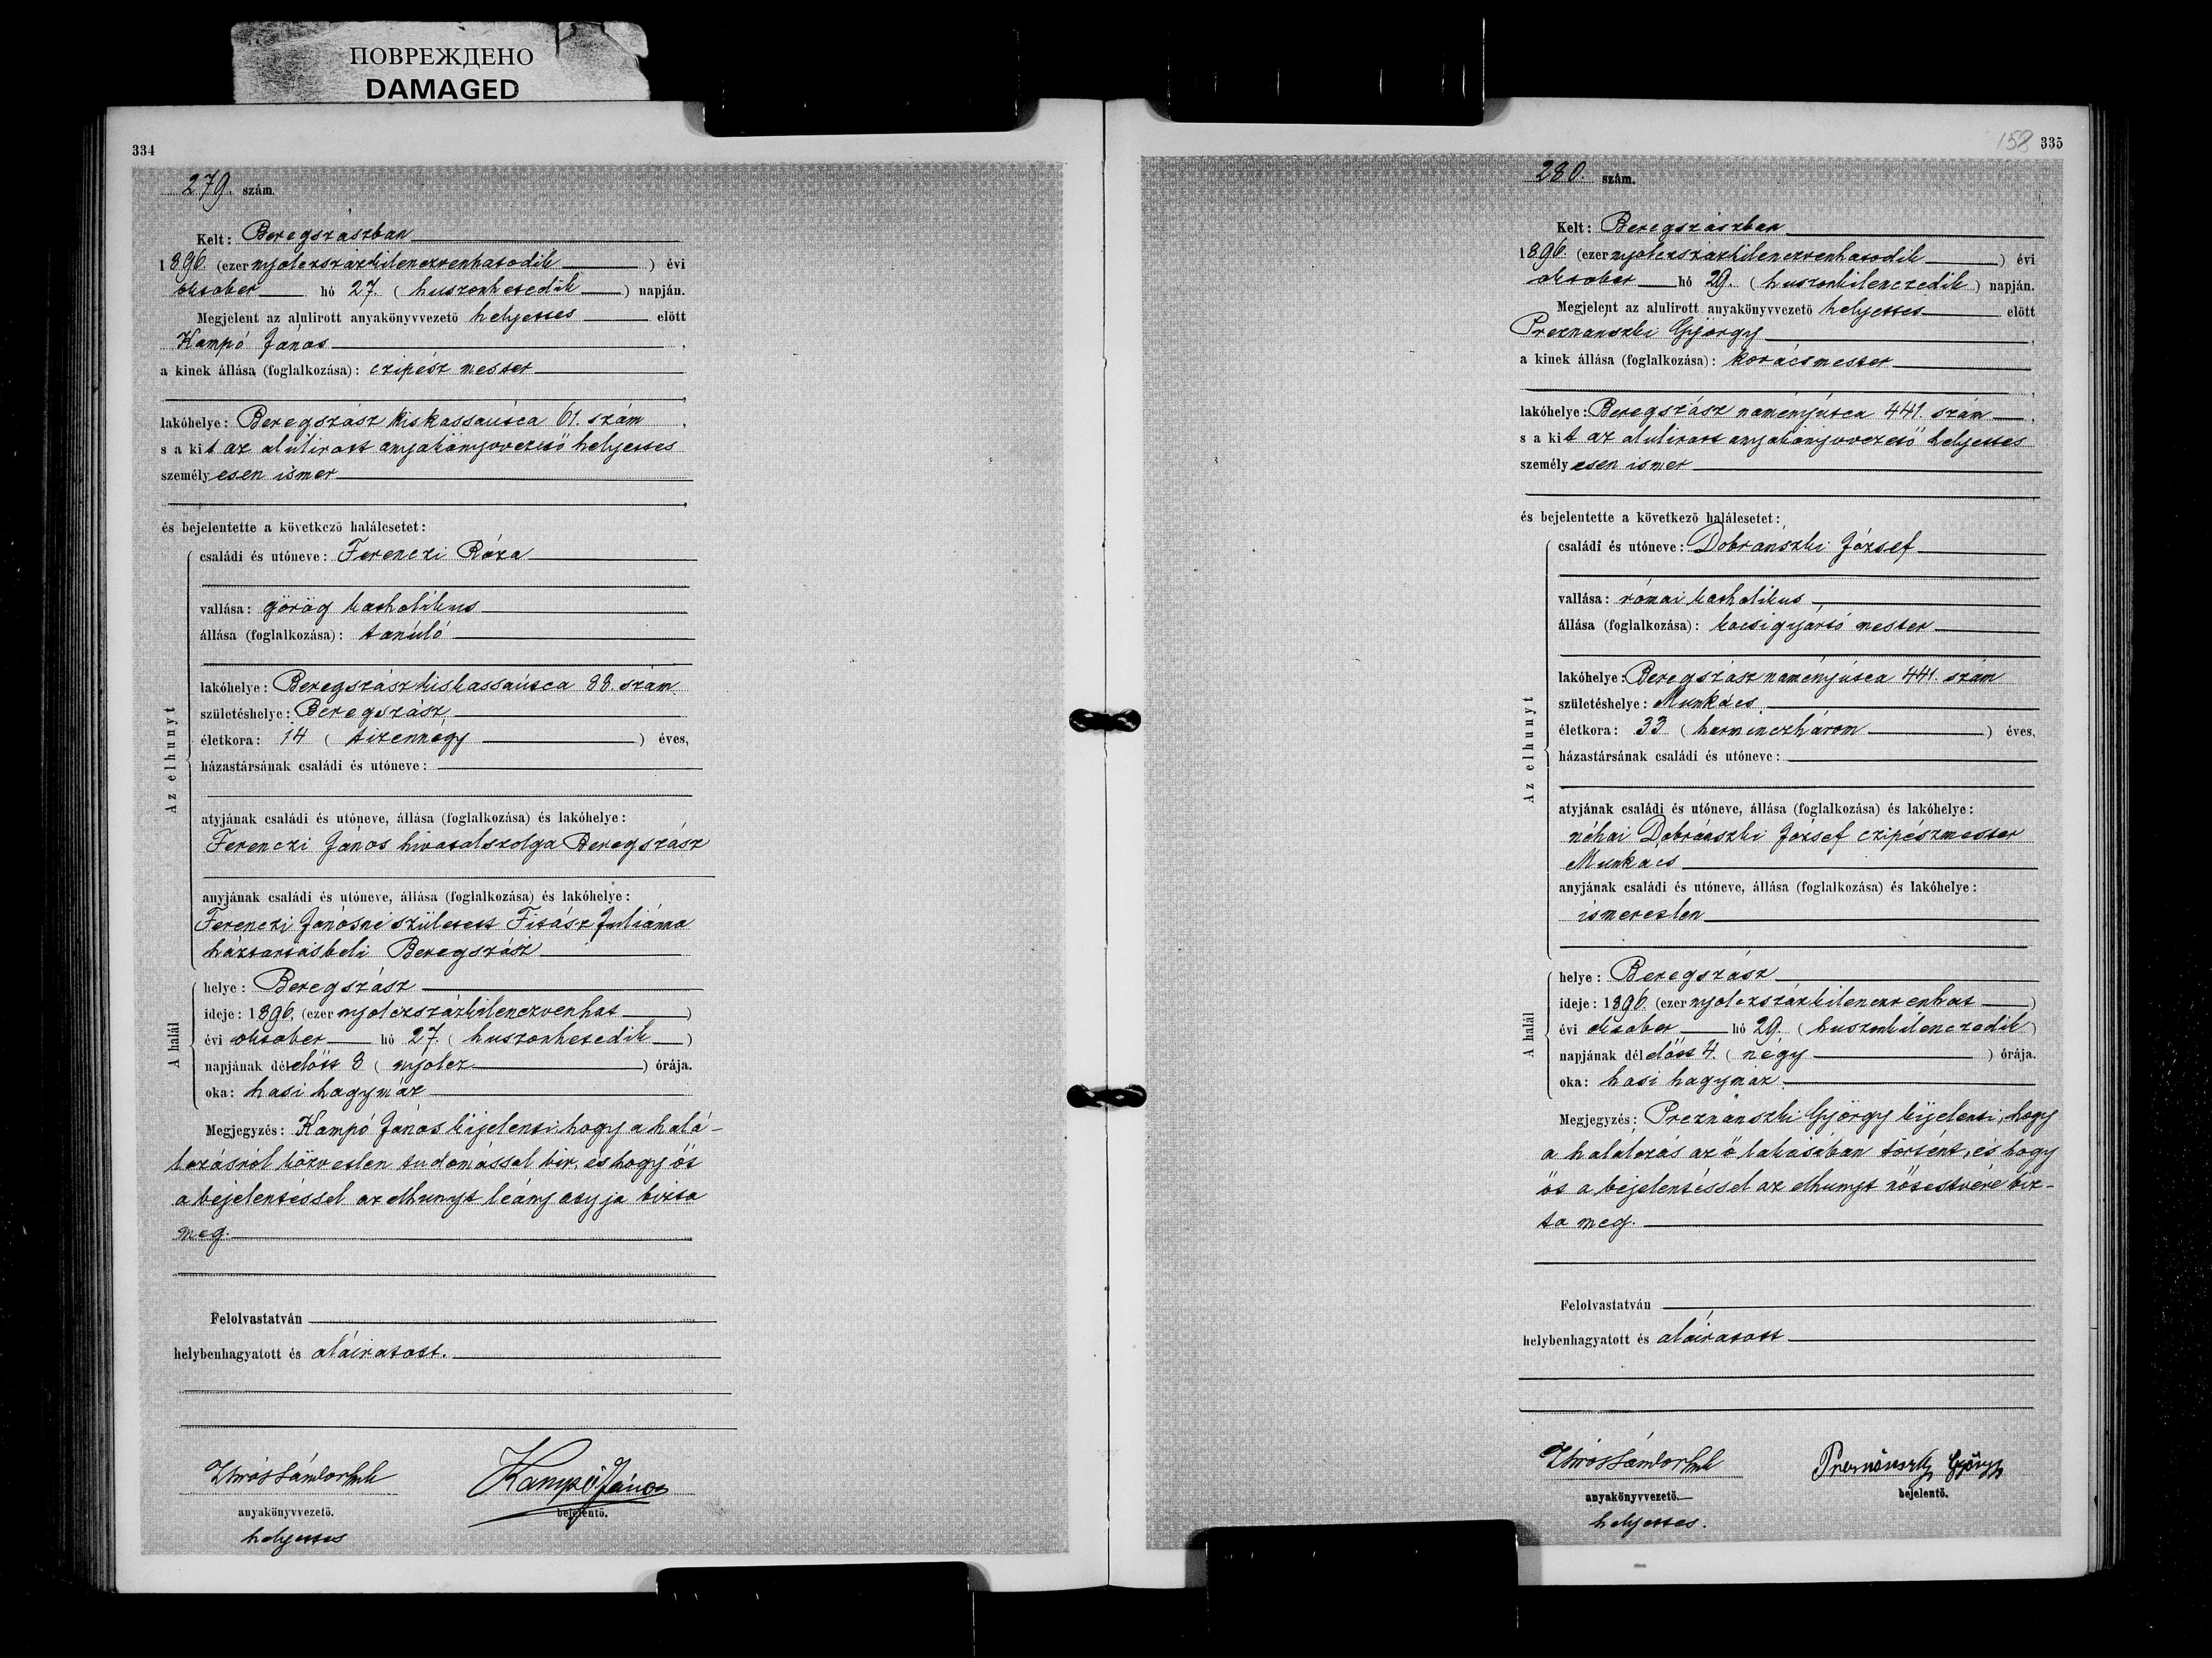 ПОВРЕЖДЕНО
DAMAGED
334
279. szám.
Kelt: Beregszászban
1896. (ezer nyolczszázkilenczvenhatodik) évi
oktober hó 27. (huszonhetedik) napján.
Megjelent az alulirott anyakönyvvezető helyettes előtt
Kampó János,
a kinek állása (foglalkozása): czipész mester
lakóhelye: Beregszász kiskassautca 61. szám,
s a kit az alulirott anyakönyvvezető helyettes
személyesen ismer
és bejelentette a következő halálesetet:
Az elhunyt
családi és utóneve: Ferenczi Róza
vallása: görög katholikus
állása (foglalkozása): tanúló
lakóhelye: Beregszász kiskassaútca 88. szám
születéshelye: Beregszász,
életkora: 14 (tizennégy) éves,
házastársának családi és utóneve:
atyjának családi és utóneve, állása (foglalkozása) és lakóhelye:
Ferenczi János hivatalszolga Beregszász
anyjának családi és utóneve, állása (foglalkozása) és lakóhelye:
Ferenczi Jánosné született Fitász Juliánna
háztartásbeli Beregszász
A halál
helye: Beregszász
ideje: 1896. (ezer nyolczszázkilenczvenhat)
évi oktober hó 27. (huszonhetedik)
napjának délelőtt 8 (nyolcz) órája.
oka: hasi hagymáz
Megjegyzés: Kampó János kijelenti, hogy a halá-
lozásról közvetlen tudomással bir, és hogy őt
a bejelentéssel az elhunyt leány atyja bizta
meg.
Felolvastatván
helybenhagyatott és aláiratott.
anyakönyvvezető.
helyettes
Kampó János
bejelentő.
158
335
280. szám.
Kelt: Beregszászban
1896. (ezer nyolczszázkilenczvenhatodik) évi
oktober hó 29. (huszonkilenczedik) napján.
Megjelent az alulirott anyakönyvvezető helyettes előtt
Preznanszki György,
a kinek állása (foglalkozása): kovácsmester
lakóhelye: Beregszász naményútca 441. szám,
s a kit az alulirott anyakönyvvezető helyettes
személyesen ismer
és bejelentette a következő halálesetet:
Az elhunyt
családi és utóneve: Dobránszki József
vallása: római katholikus
állása (foglalkozása): kocsigyártó mester
lakóhelye: Beregszász naményútca 441. szám
születéshelye: Munkács
életkora: 33 (harminczhárom) éves,
házastársának családi és utóneve:
atyjának családi és utóneve, állása (foglalkozása) és lakóhelye:
néhai Dobránszki József czipészmester
Munkács
anyjának családi és utóneve, állása (foglalkozása) és lakóhelye:
ismeretlen
A halál
helye: Beregszász
ideje: 1896. (ezer nyolczszázkilenczvenhat)
évi oktober hó 29. (huszonkilenczedik)
napjának délelőtt 4. (négy) órája.
oka: hasi hagymáz
Megjegyzés: Preznánszki György kijelenti, hogy
a halálozás az ő lakásában történt, és hogy
őt a bejelentéssel az elhunyt nőtestvére biz-
ta meg.
Felolvastatván
helybenhagyatott és aláiratott
anyakönyvvezető.
helyettes.
Preznánszky György
bejelentő.